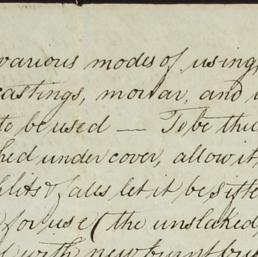 various modes of using
castings, mortar, and
to be used — To be thus
hed under cover, allow it
splits & falls let it be sifte
for use (the unslaked
with new burnt bu